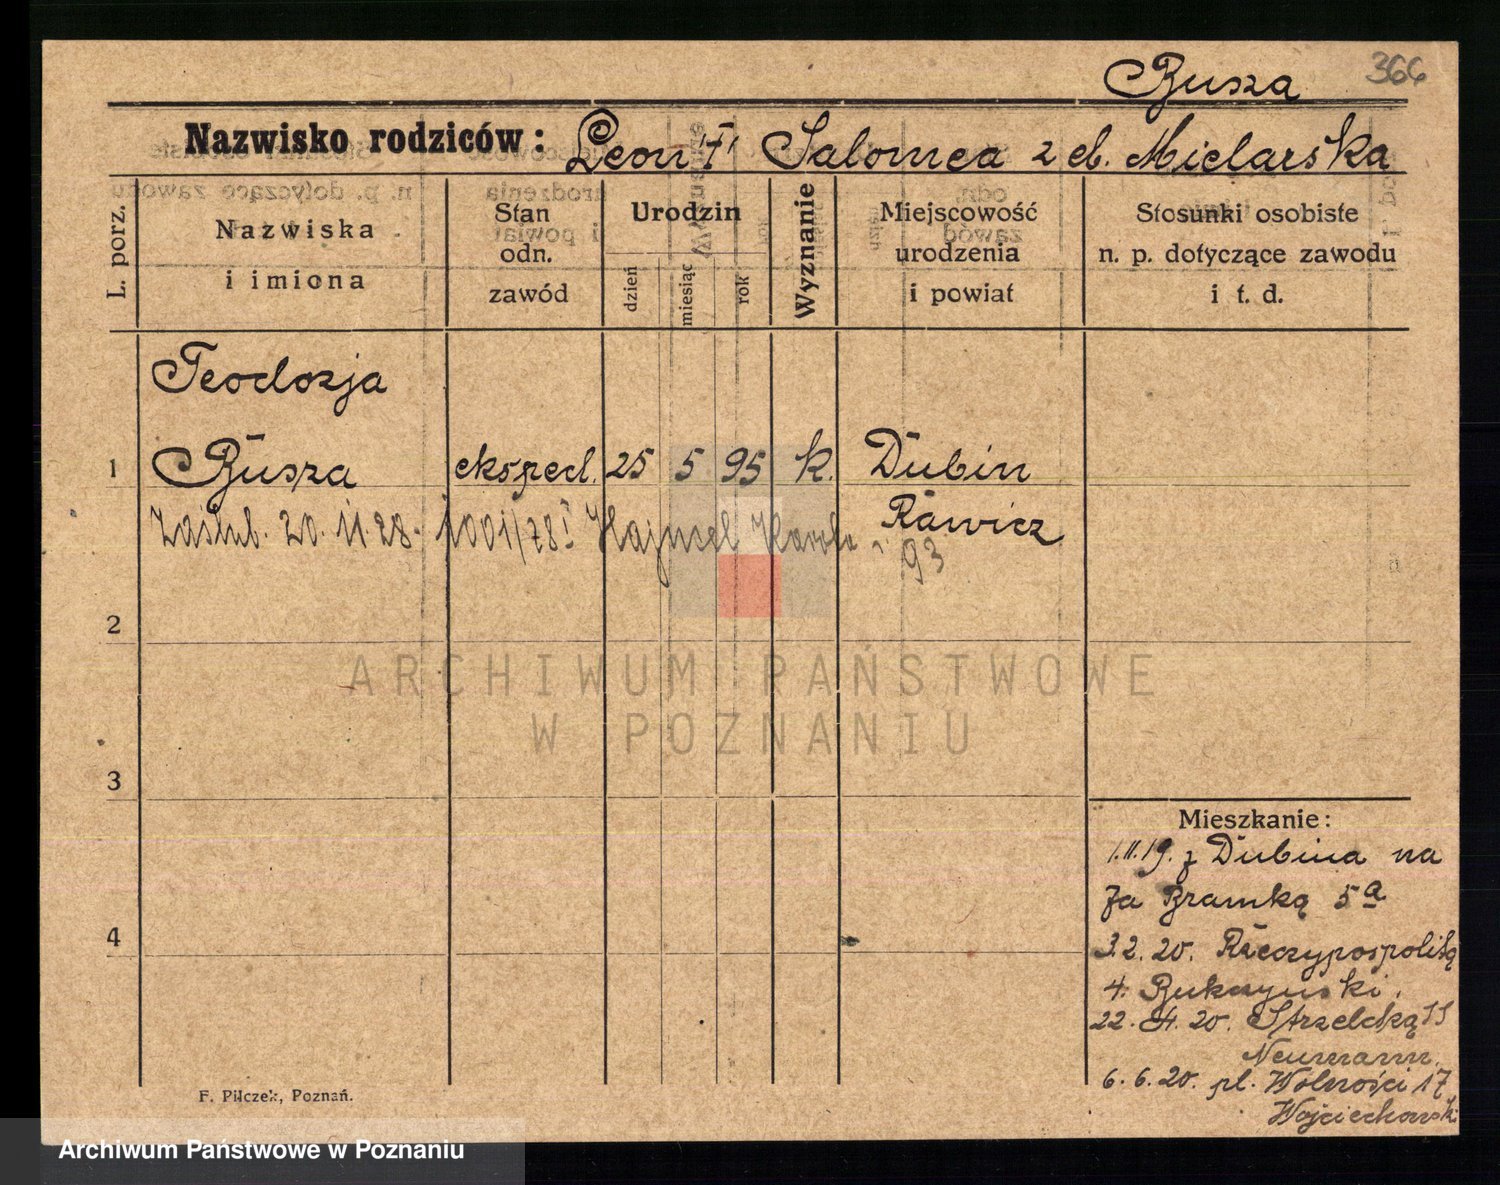 Busza 366
Nazwisko rodziców: Leon "†" Salomea 2 el. Mielarska
L. porz.
Nazwiska
i imiona
Stan
odn.
zawód
Urodzin
dzień
miesiąc
rok
Wyznanie
Miejscowość
urodzenia
i powiat
Stosunki osobiste
n. p. dotyczące zawodu
i t. d.
Teodozja
1 Busza eksped. 25 5 95 k. Dubin
Rawicz
Zaślub. 20. 11 28. 1001/28 I Karola
93
2
3
4
ARCHIWUM PAŃSTWOWE
W POZNANIU
Mieszkanie:
1.11.19. z Dubina na
Za Bramką 5a
3.2.20. Rzeczypospolitą
4. Bukczyński.
22. 4. 20. Strzelecką 11
Neumann.
6.6.20. pl. Wolności 17
Wojciechowski
F. Pilczek, Poznań.
Archiwum Państwowe w Poznaniu